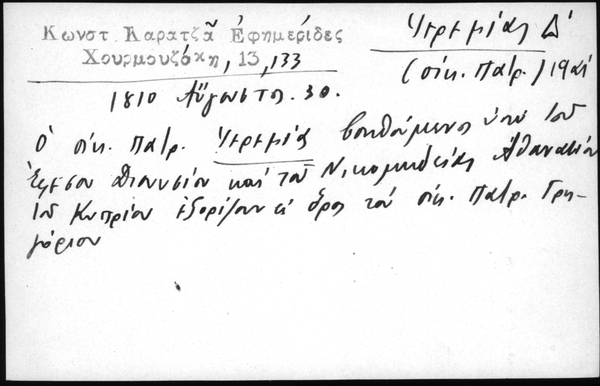 Κωνστ. Καρατζᾶ Ἐφημερίδες
Χουρμουζάκη, 13, 133
Ἱερεμίας Δ'
(οἰκ. πατρ.)
1810 Αὔγουστ. 30.
Ὁ οἰκ. πατρ. Ἱερεμίας βοηθούμενος ὑπὸ τοῦ
Ἐφέσου Διονυσίου καὶ τοῦ Νικομηδείας Ἀθανασίου
τοῦ Κυπρίου ἐξορίζουν εἰς ὄρος τὸν οἰκ. πατρ. Γρη-
γόριον